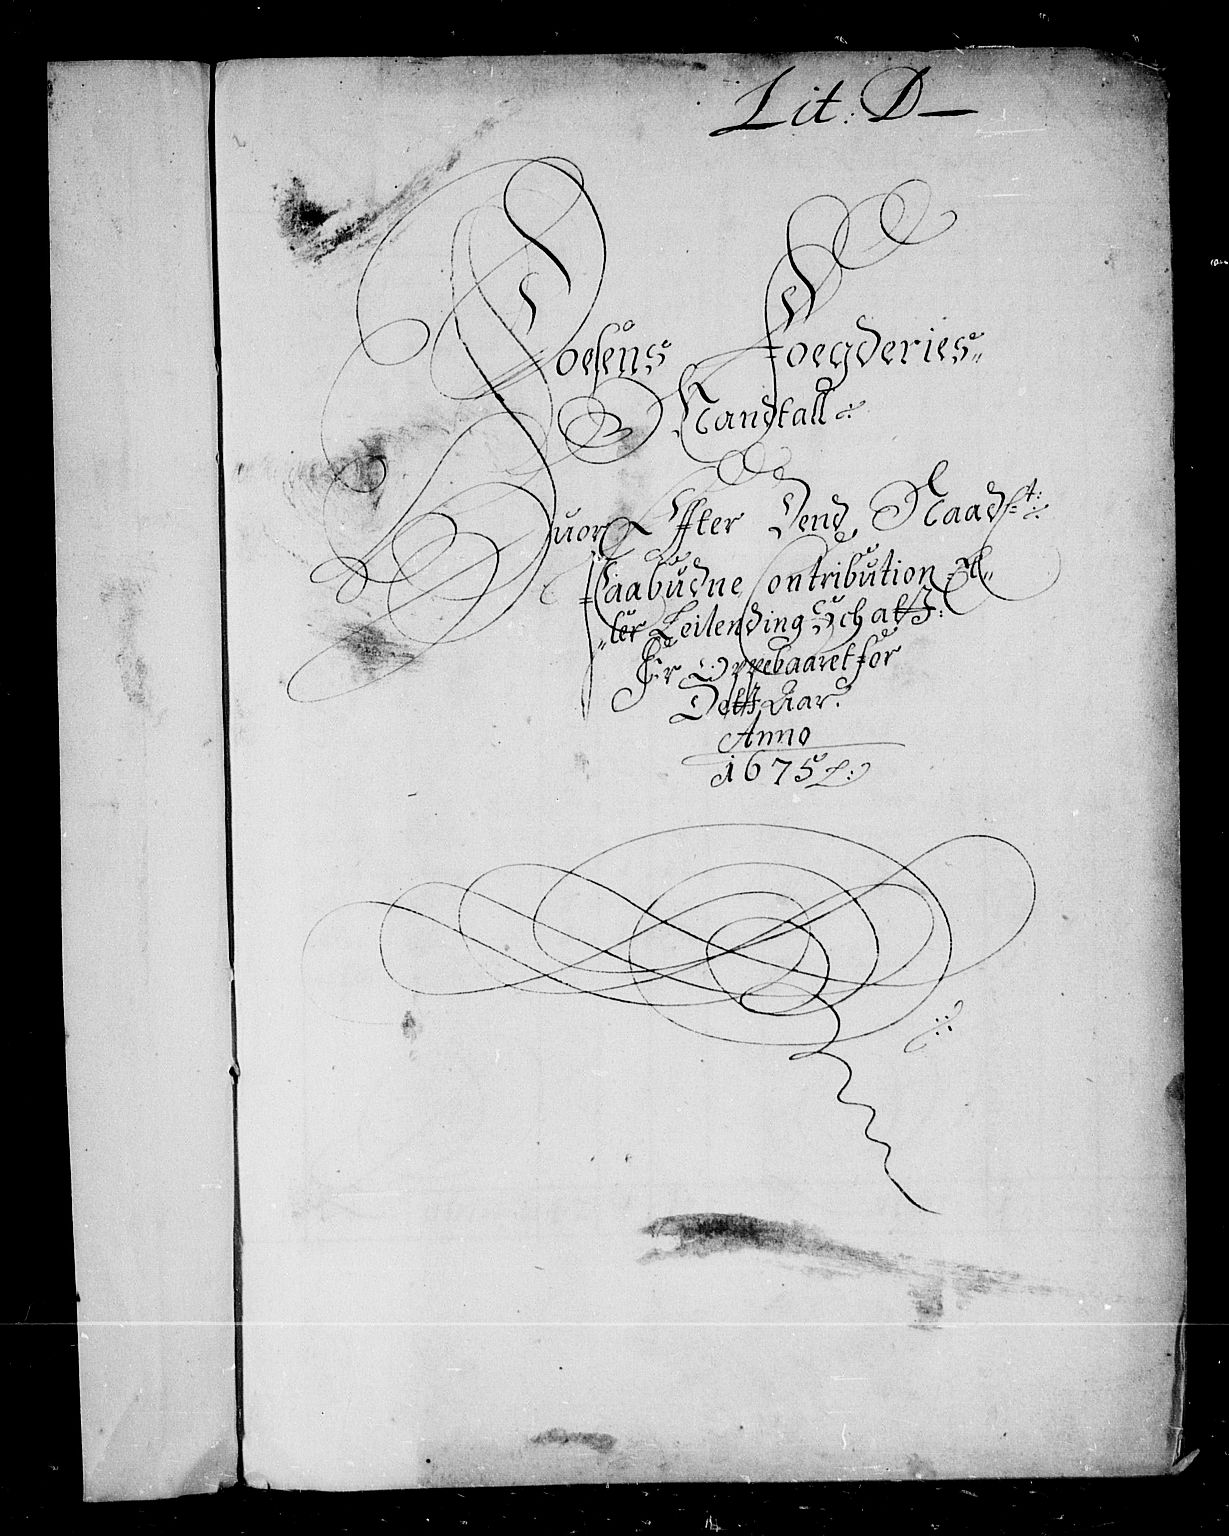 Lit: D
Foesens Foegderies
Mandtall
Huor Effter Dend Naadst:
Paabudne Contribution El-
ler Leilending Schatt:
Er Oppebaaret for
Dett Aar:
Anno
1675